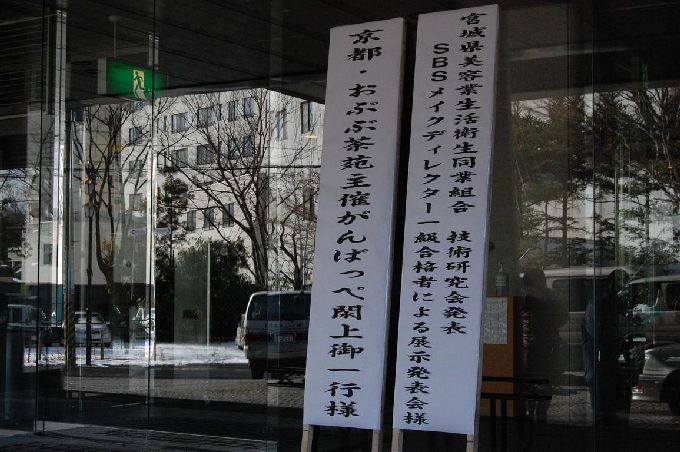 宮城県美容業生活衛生同業組合 技術研究会発表
SBSメイクディレクター一級合格者による展示発表会様
京都・おぶぶ茶苑主催がんばっぺ閖上御一行様